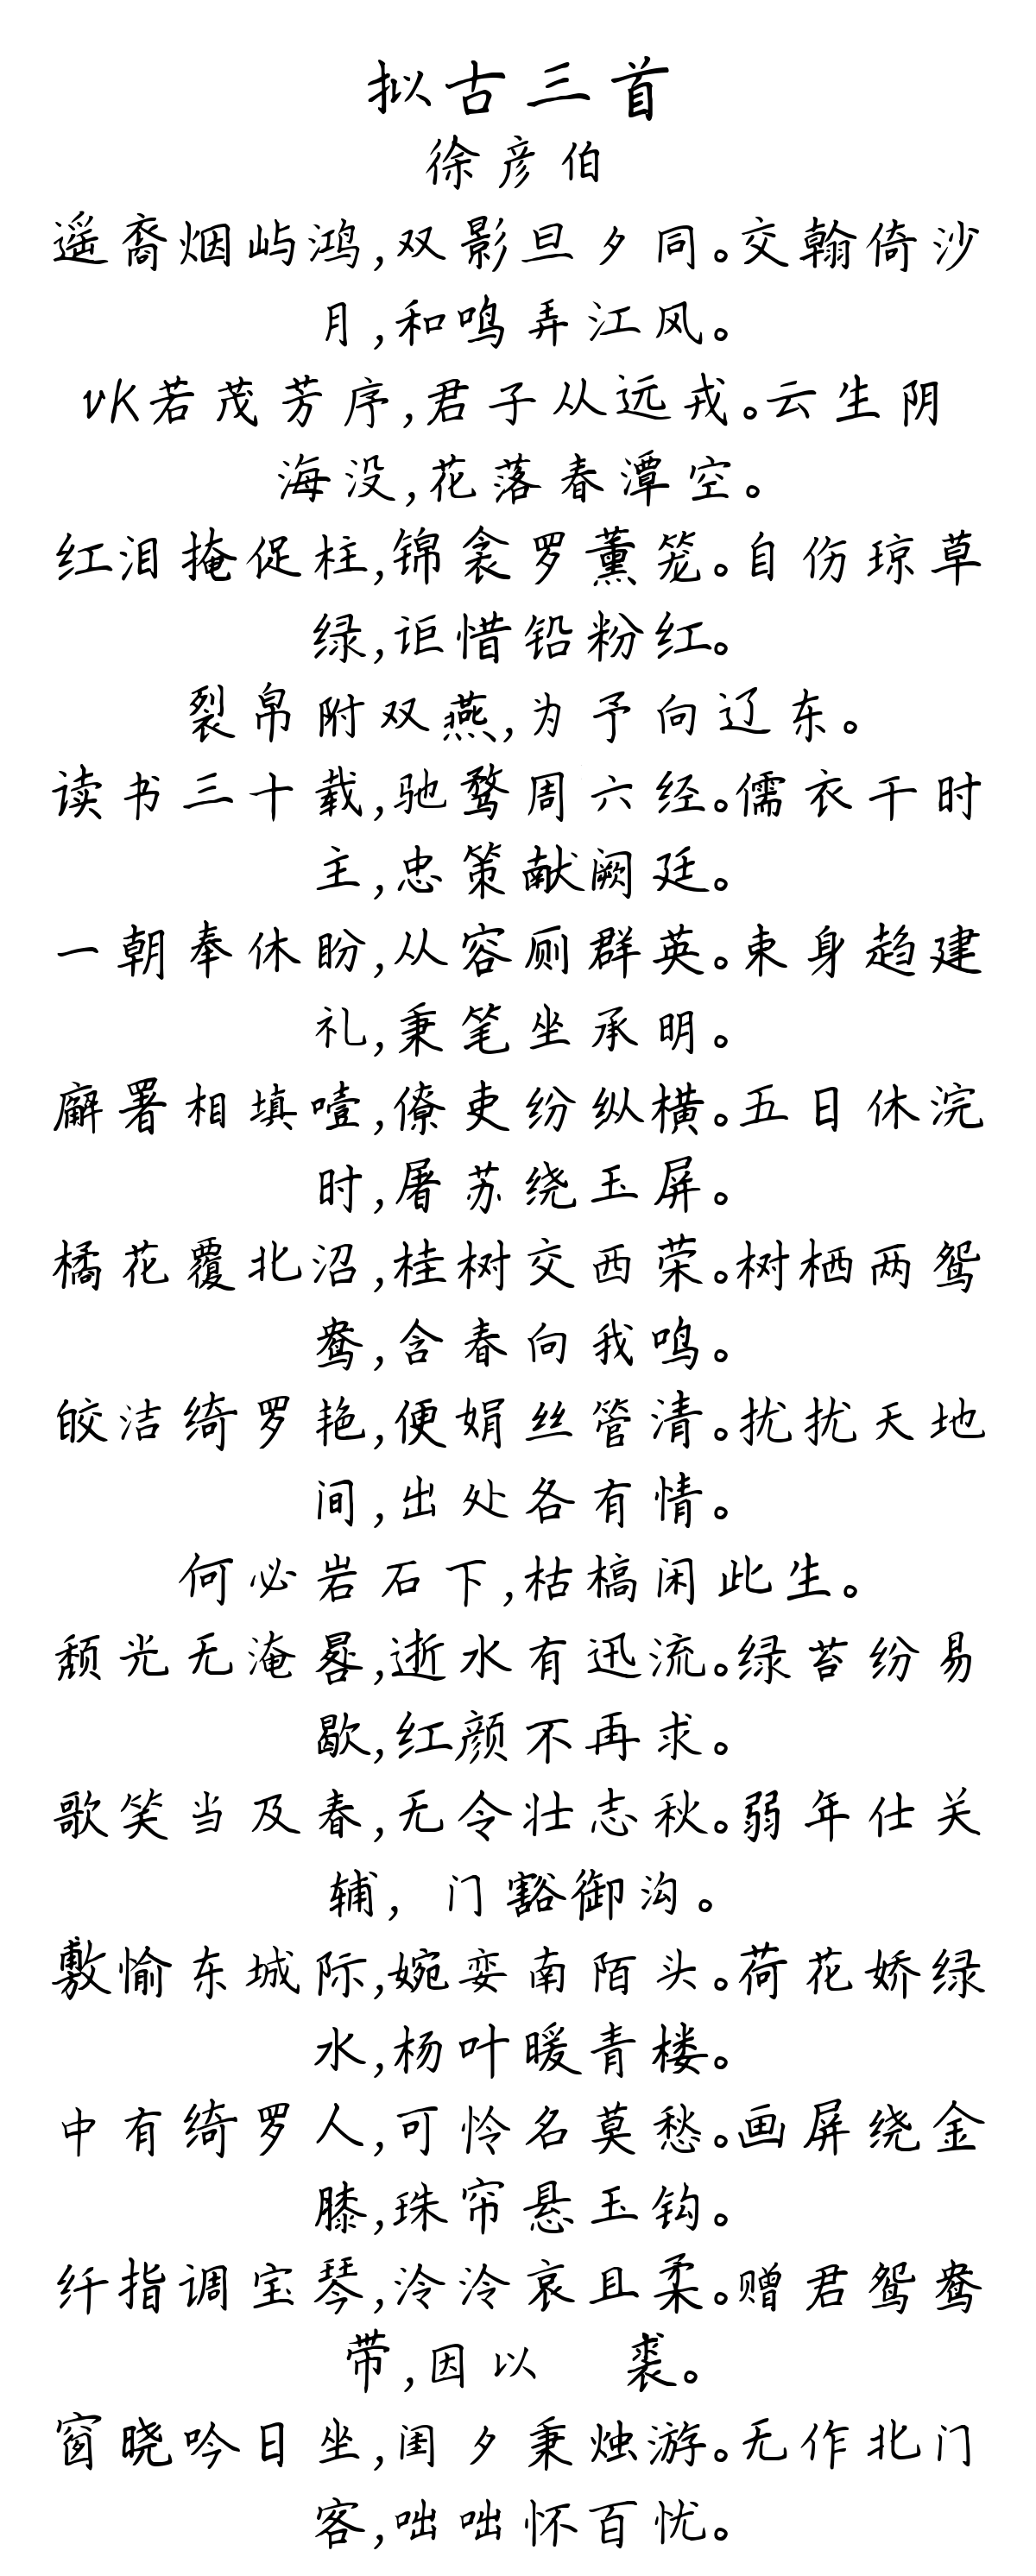 拟古三首
徐彦伯
遥裔烟屿鸿,双影旦夕同。交翰倚沙
月,和鸣弄江风。
vK若茂芳序,君子从远戎。云生阴
海没,花落春潭空。
红泪掩促柱,锦衾罗薰笼。自伤琼草
绿,讵惜铅粉红。
裂帛附双燕,为予向辽东。
读书三十载,驰骛周六经。儒衣干时
主,忠策献阙廷。
一朝奉休盼,从容厕群英。束身趋建
礼,秉笔坐承明。
廨署相填噎,僚吏纷纵横。五日休浣
时,屠苏绕玉屏。
橘花覆北沼,桂树交西荣。树栖两鸳
鸯,含春向我鸣。
皎洁绮罗艳,便娟丝管清。扰扰天地
间,出处各有情。
何必岩石下,枯槁闲此生。
颓光无淹晷,逝水有迅流。绿苔纷易
歇,红颜不再求。
歌笑当及春,无令壮志秋。弱年仕关
辅,门豁御沟。
敷愉东城际,婉娈南陌头。荷花娇绿
水,杨叶暖青楼。
中有绮罗人,可怜名莫愁。画屏绕金
膝,珠帘悬玉钩。
纤指调宝琴,泠泠哀且柔。赠君鸳鸯
带,因以 裘。
窗晓吟日坐,闺夕秉烛游。无作北门
客,咄咄怀百忧。